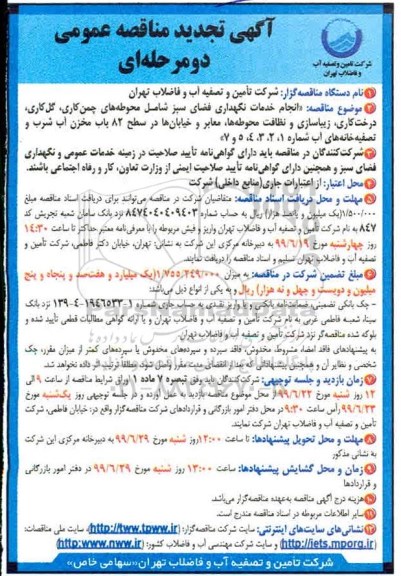 آگهی تجدید مناقصه عمومی
دو مرحله‌ای
شرکت تأمین و تصفیه آب
و فاضلاب تهران
۱ نام دستگاه مناقصه‌گزار: شرکت تأمین و تصفیه آب و فاضلاب تهران
۲ موضوع مناقصه: «انجام خدمات نگهداری فضای سبز شامل محوطه‌های چمن‌کاری، گل‌کاری،
درخت‌کاری، زیباسازی و نظافت محوطه‌ها، معابر و خیابان‌ها در سطح ۸۲ باب مخزن آب شرب و
تصفیه‌خانه‌های آب شماره ۱، ۲، ۳، ۴، ۵ و ۷»
۳ شرکت‌کنندگان در مناقصه باید دارای گواهی‌نامه تأیید صلاحیت در زمینه خدمات عمومی و نگهداری
فضای سبز و همچنین دارای گواهی‌نامه تأیید صلاحیت ایمنی از وزارت تعاون، کار و رفاه اجتماعی باشند.
۴ محل اعتبار: از اعتبارات جاری (منابع داخلی) شرکت
۵ مهلت و محل دریافت اسناد مناقصه: متقاضیان شرکت در مناقصه می‌توانند برای دریافت اسناد مناقصه مبلغ
۱/۵۰۰/۰۰۰ (یک میلیون و پانصد هزار) ریال به حساب شماره ۸۴۷۴۰۴۰۴۰۹۴۰۳ نزد بانک سامان شعبه تجریش کد
۸۴۷ به نام شرکت تأمین و تصفیه آب و فاضلاب تهران واریز و فیش مربوطه را با معرفی‌نامه معتبر حداکثر تا ساعت ۱۴:۳۰
روز چهارشنبه مورخ ۹۹/۶/۱۹ به دبیرخانه مرکزی این شرکت به نشانی: تهران، خیابان دکتر فاطمی، شرکت تأمین و
تصفیه آب و فاضلاب تهران تسلیم و اسناد مناقصه را دریافت نمایند.
۶ مبلغ تضمین شرکت در مناقصه: به میزان ۱/۷۵۵/۲۴۹/۰۰۰ (یک میلیارد و هفت‌صد و پنجاه و پنج
میلیون و دویست و چهل و نه هزار) ریال و به یکی از انواع ذیل می‌باشد:
- چک بانکی تضمینی، ضمانت‌نامه بانکی و یا واریز نقدی به حساب جاری شماره نزد بانک
سینا، شعبه فاطمی غربی به نام شرکت تأمین و تصفیه آب و فاضلاب تهران و یا ارائه گواهی مطالبات قطعی تأیید شده و
بلوکه شده مناقصه‌گر نزد شرکت تأمین و تصفیه آب و فاضلاب تهران
به پیشنهادهای فاقد امضاء، مشروط، مخدوش، فاقد سپرده و سپرده‌های مخدوش یا سپرده‌های کمتر از میزان مقرر، چک
شخصی و نظایر آن و همچنین پیشنهاداتی که بعد از انقضای مدت مقرر واصل شود، مطلقاً ترتیب اثر داده نخواهد شد.
۷ زمان بازدید و جلسه توجیهی: شرکت‌کنندگان باید وفق تبصره ۷ ماده ۱ اوراق شرایط مناقصه از ساعت ۹ الی
۱۲ روز شنبه مورخ ۹۹/۶/۲۲ از محل موضوع مناقصه بازدید به عمل آورده و در جلسه توجیهی روز یک‌شنبه مورخ
۹۹/۶/۲۳ رأس ساعت ۹:۳۰ در محل دفتر امور بازرگانی و قراردادهای شرکت مناقصه‌گزار واقع در: خیابان فاطمی، شرکت
تأمین و تصفیه آب و فاضلاب تهران شرکت نمایند.
۸ مهلت و محل تحویل پیشنهادها: تا ساعت ۱۲:۰۰ روز شنبه مورخ ۹۹/۶/۲۹ به دبیرخانه مرکزی این شرکت
به نشانی مذکور
۹ زمان و محل گشایش پیشنهادها: ساعت ۱۳:۰۰ روز شنبه مورخ ۹۹/۶/۲۹ در دفتر امور بازرگانی
و قراردادها
۱۰ هزینه درج آگهی مناقصه به‌عهده مناقصه‌گزار می‌باشد.
۱۱ سایر اطلاعات مربوطه در اسناد مناقصه مندرج است.
۱۲ نشانی‌های سایت‌های اینترنتی: سایت شرکت مناقصه‌گزار: (http://tww.tpww.ir)، سایت ملی مناقصات:
(http://iets.mporg.ir) و سایت شرکت مهندسی آب و فاضلاب کشور: (http://www.nww.ir)
شرکت تأمین و تصفیه آب و فاضلاب تهران «سهامی خاص»